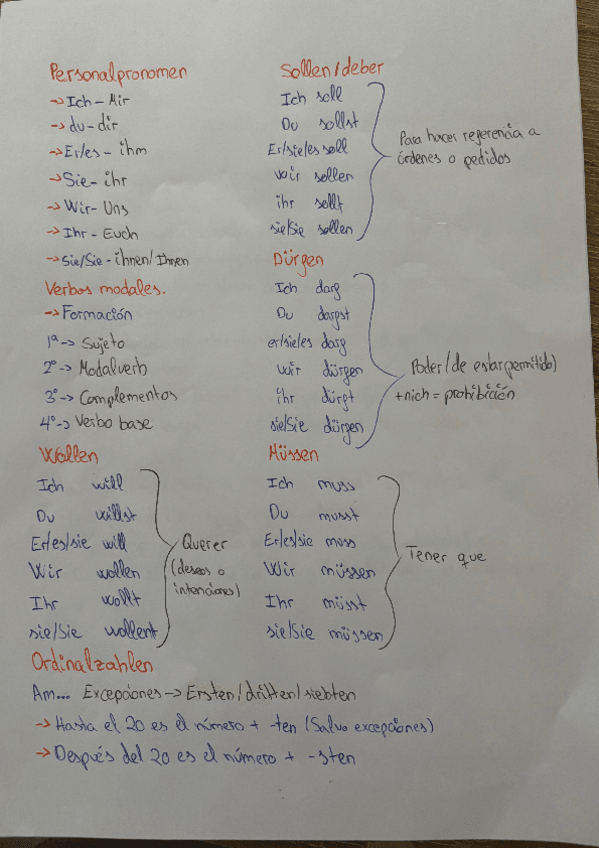 Personalpronomen
→ Ich - Mir
→ du - dir
→ Er/es - ihm
→ Sie - ihr
→ Wir - Uns
→ Ihr - Euch
→ Sie/Sie - ihnen/Ihnen
Verbos modales.
→ Formación
1º → Sujeto
2º → Modalverb
3º → Complementos
4º → Verbo base
Sollen/deber
Ich soll
Du sollst
Er/sie/es soll
wir sollen
ihr sollt
sie/Sie sollen
Para hacer referencia a
órdenes o pedidos
Dürfen
Ich darf
Du darfst
er/sie/es darf
wir dürfen
ihr dürft
sie/Sie dürfen
Poder (de estar permitido)
+nich = prohibición
Wollen
Ich will
Du willst
Er/es/sie will
Wir wollen
Ihr wollt
sie/Sie wollent
Querer
(deseos o
intenciones)
Müssen
Ich muss
Du musst
Er/es/sie muss
Wir müssen
Ihr müsst
sie/Sie müssen
Tener que
Ordinalzahlen
Am... Excepciones → Ersten/dritten/siebten
→ Hasta el 20 es el número + -ten (Salvo excepciones)
→ Después del 20 es el número + -sten